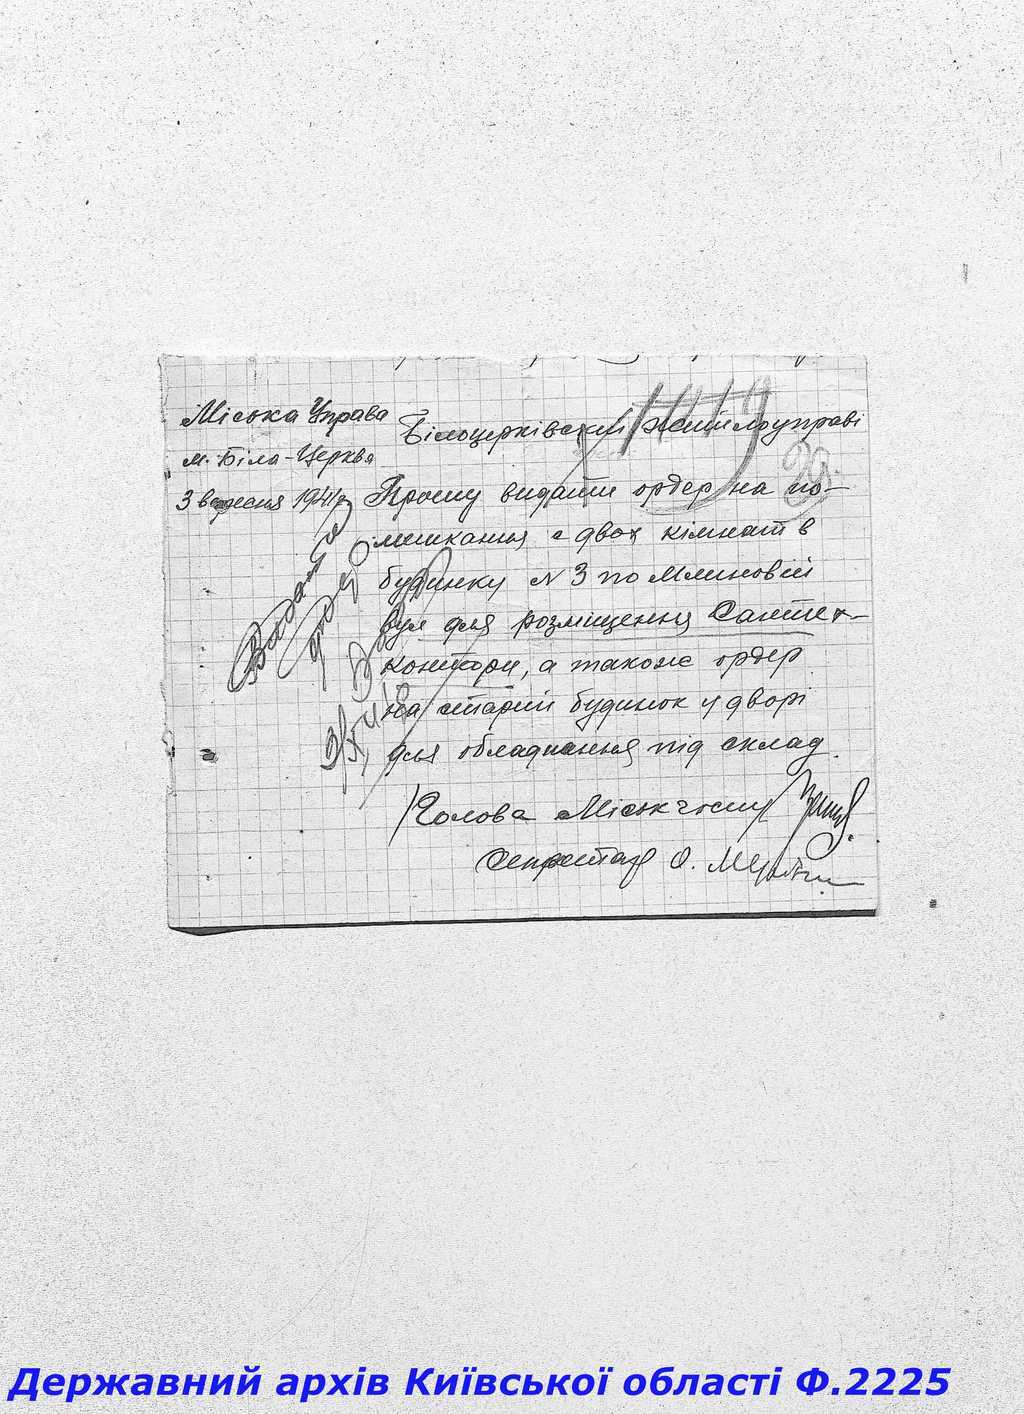 Міська Управа
м. Біла-Церква
3 вересня 1941 р
Білоцерківській Житлоуправі
Прошу видати ордер на по-
мешкання с двох кімнат в
будинку № 3 по Млиновій
вул для розміщення Сантех-
контори, а також ордер
на старий будинок у дворі
для обладнання під склад.
Голова
Секретар О.
Видати
ордер
20
Державний архів Київської області Ф.2225